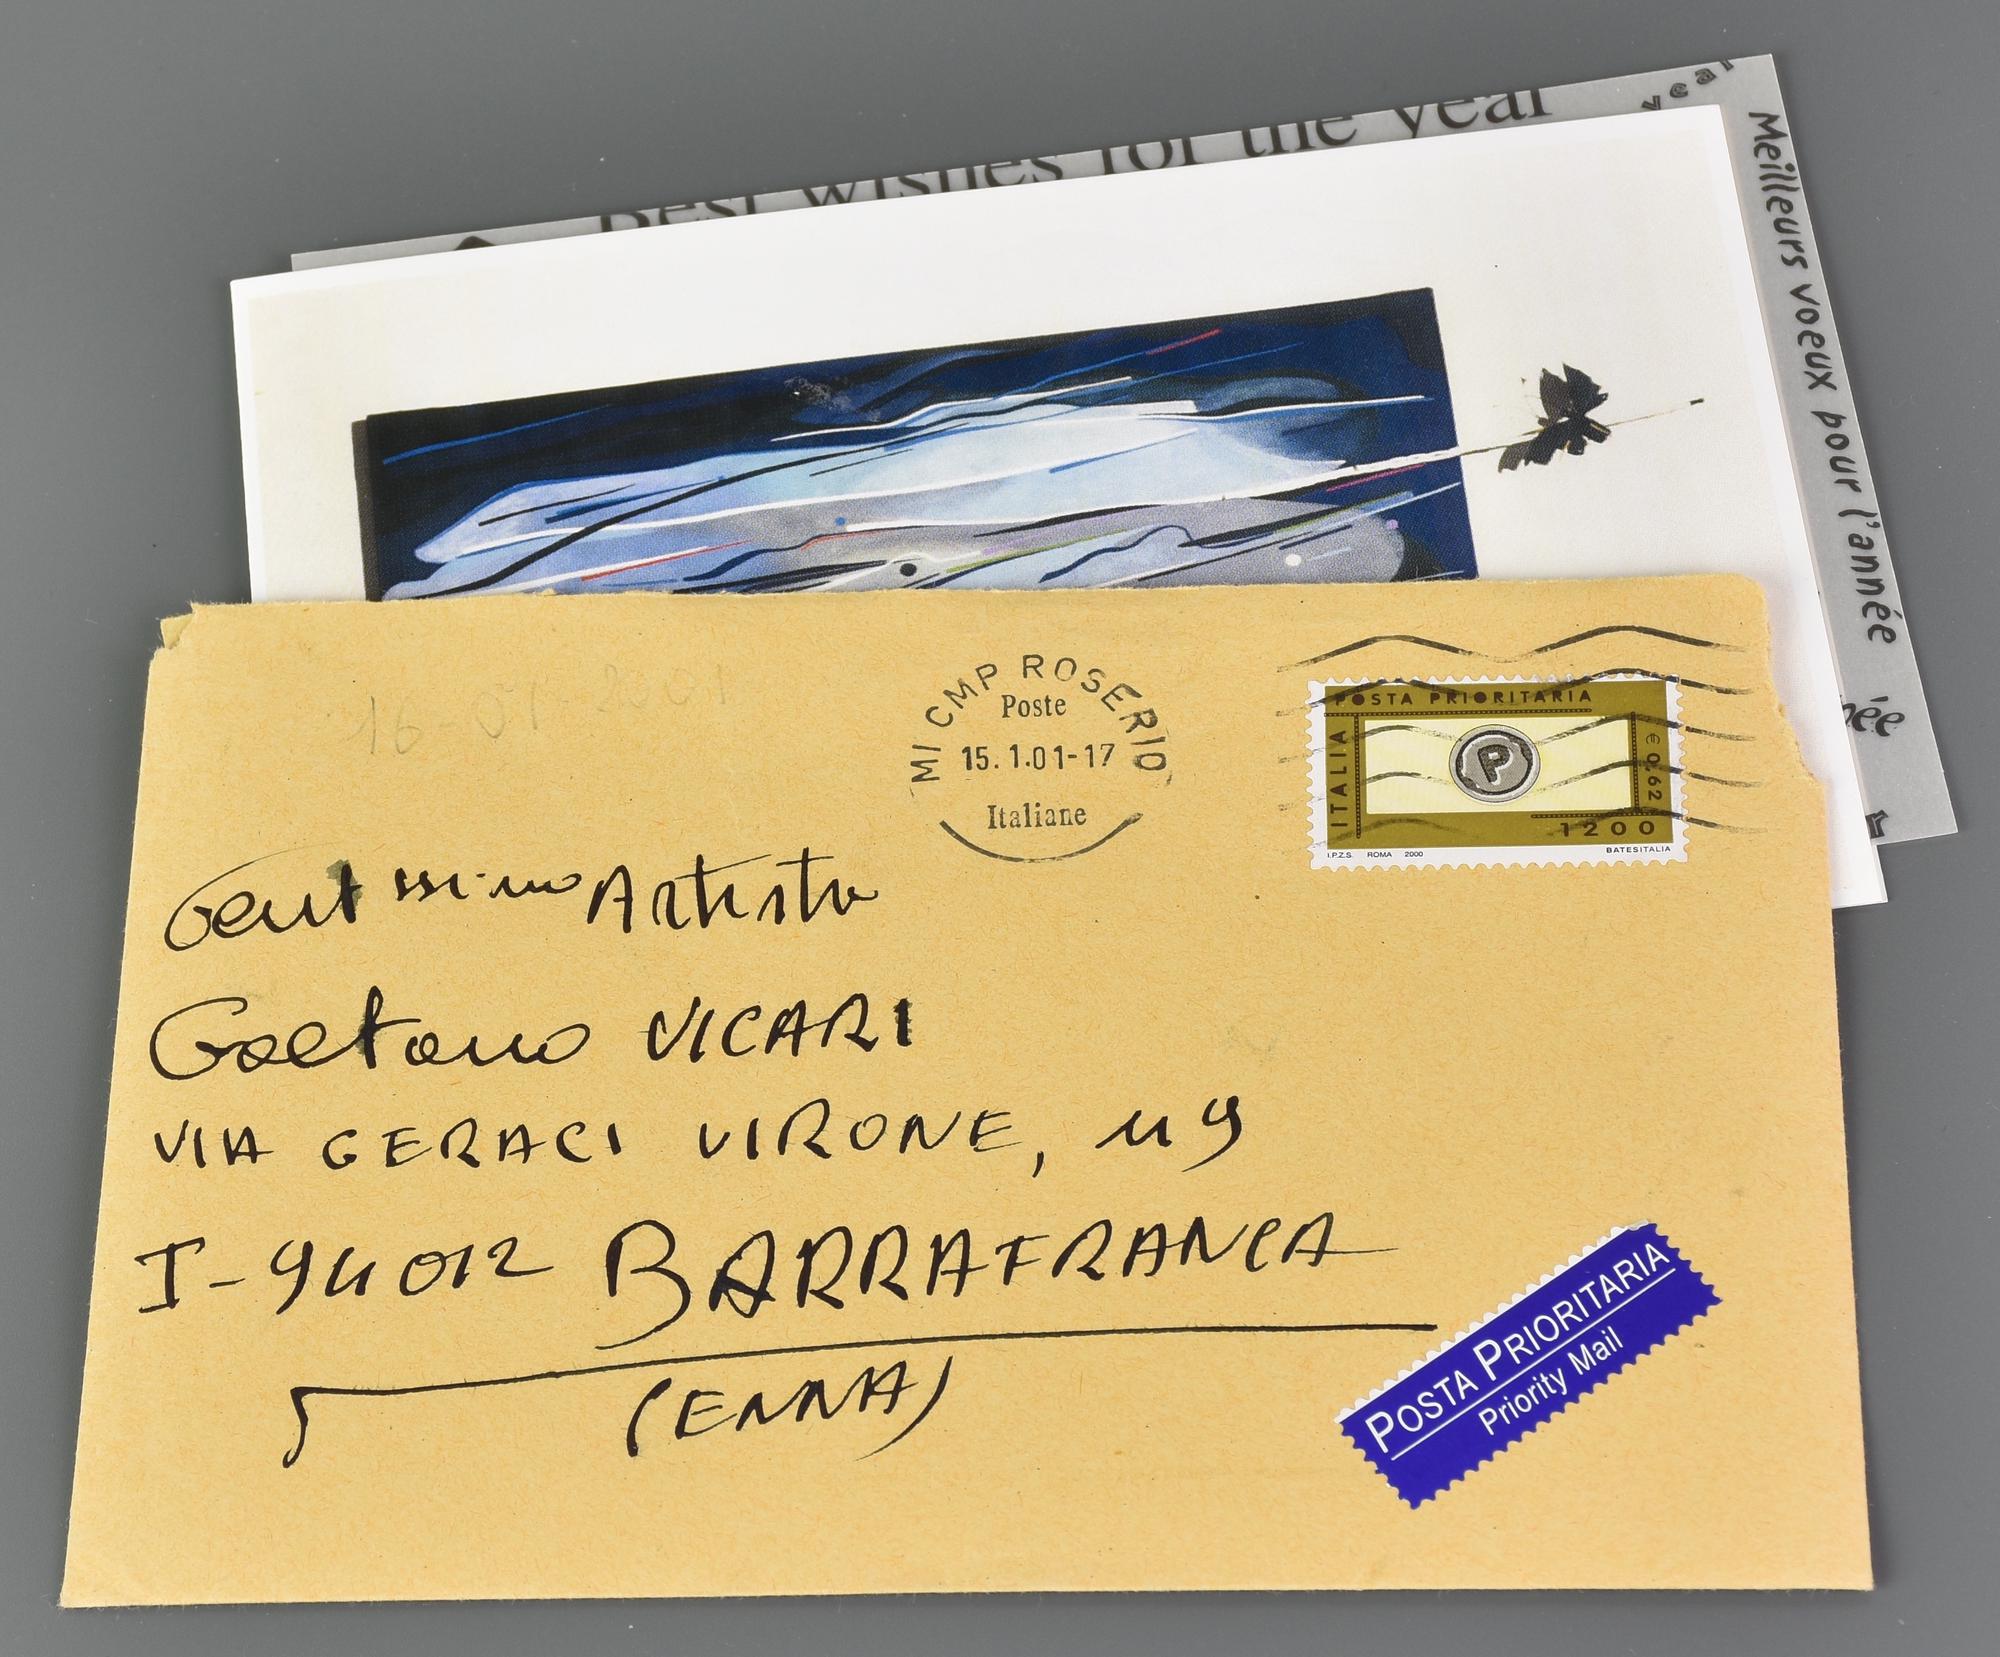 Best wishes for the year
year
Meilleurs voeux pour l'année
née
16 01 2001
MI CMP ROSERIO
Poste
15.1.01-17
Italiane
POSTA PRIORITARIA
ITALIA
P
€ 0,62
1200
I.P.Z.S. ROMA 2000
BATESITALIA
Gentissimo Artista
Gaetano VICARI
VIA GERACI VIRONE, 119
I-94012 BARRAFRANCA
(ENNA)
POSTA PRIORITARIA
Priority Mail